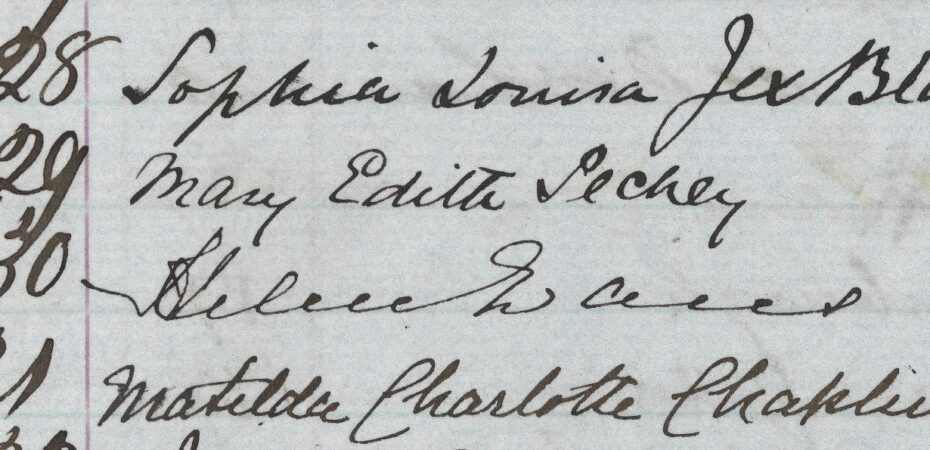 28 Sophia Louisa Jex Bla
29 Mary Edith Pechey
30 Helen Evans
Matilda Charlotte Chaplin